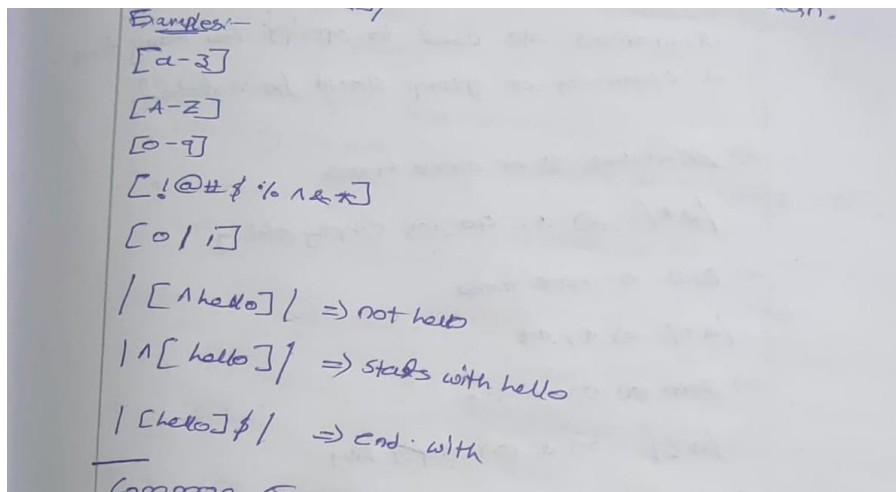 Examples:-
[a-z]
[A-Z]
[0-9]
[!@#$%^&*]
[0/1]
/[^hello]/ => not hello
/^[hello]/ => starts with hello
/[hello]$/ => end with
Common